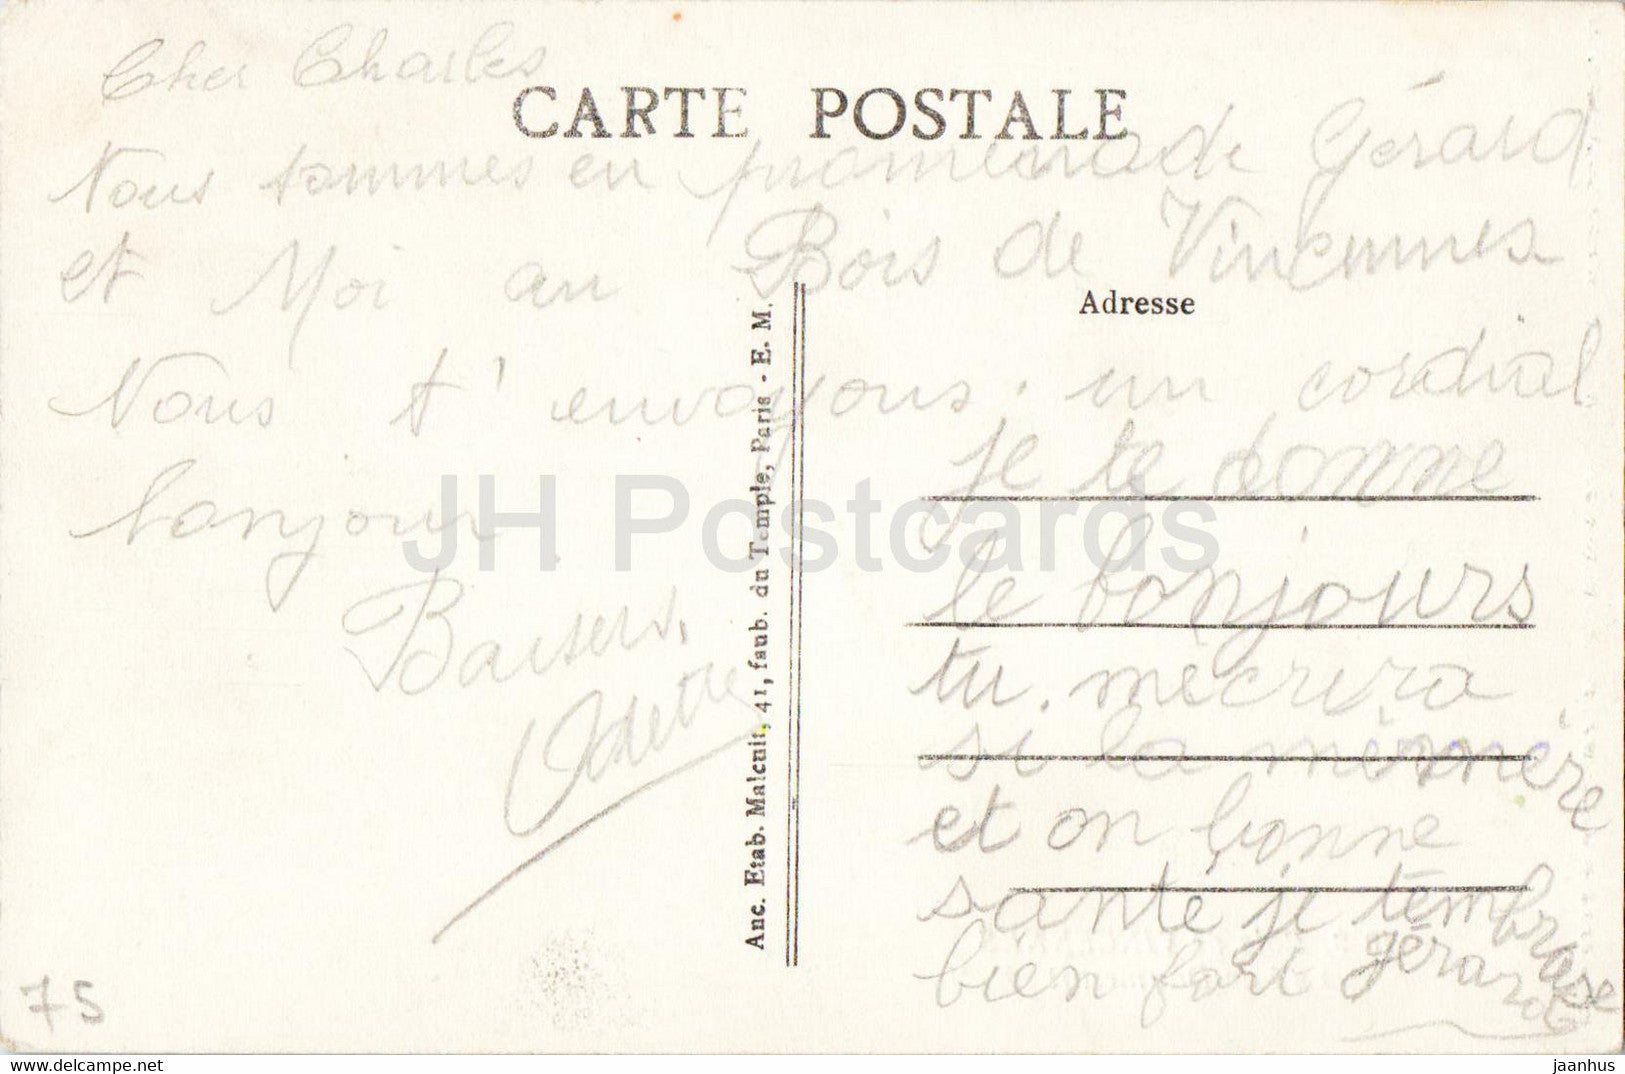 Cher Charles
CARTE POSTALE
Nous sommes en promenade Gérard
et Moi au Bois de Vincennes
Adresse
Nous t'envoyons un cordial
bonjour
Baisers.
Odette
je te donne
le bonjours
tu mécrira
si la mémmère
et on bonne
santé je tembrase
bien fort gérard
Anc. Etab. Malcuit, 41, faub. du Temple, Paris - E. M.
75
JH Postcards
www.delcampe.net
jaanhus